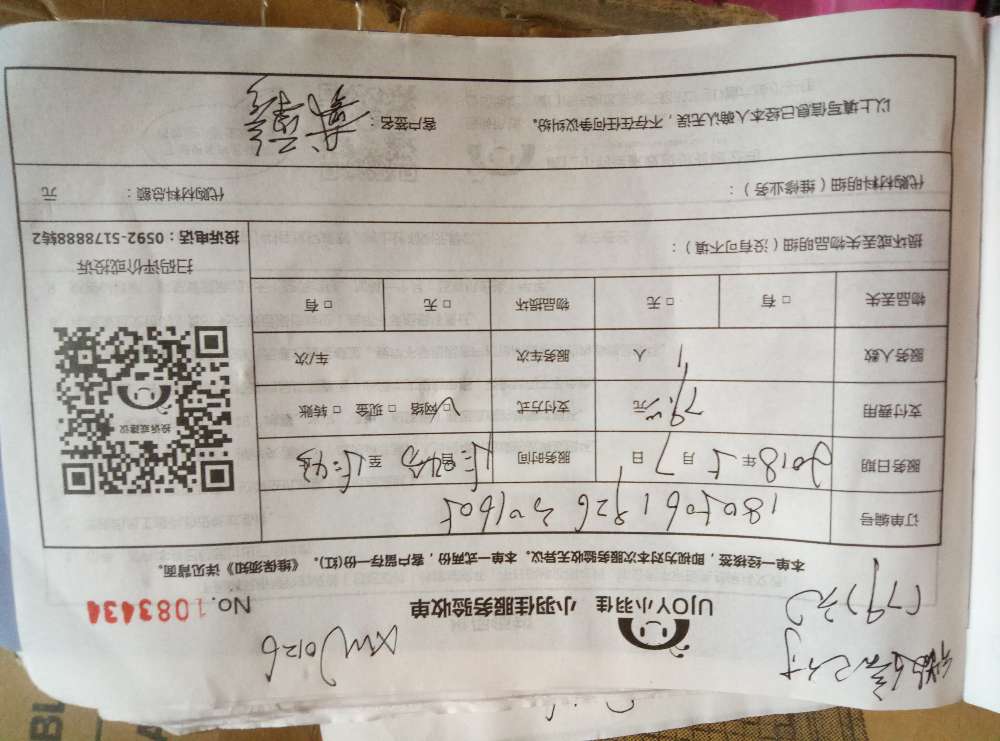 微信已付
(79)元
XWJ0126
UJOY小羽佳 小羽佳服务验收单
No.1083434
本单一经核签，即视为对本次服务验收无异议。本单一式两份，客户留存一份(红)。《维保须知》详见背面。
订单编号
服务日期 2018年5月7日 服务时间
支付费用 79.00元 支付方式 □网络 □现金 □转账
服务人数 1人 服务车次 车/次
物品丢失 □有 □无 物品损坏 □无 □有
投诉或建议
扫码评价或投诉
投诉电话：0592-5178888转2
损坏或丢失物品明细（没有可不填）：
代购材料明细（维修业务）： 代购材料总额： 元
以上填写信息已经本人确认无误，不存在任何争议纠纷。 客户签名：